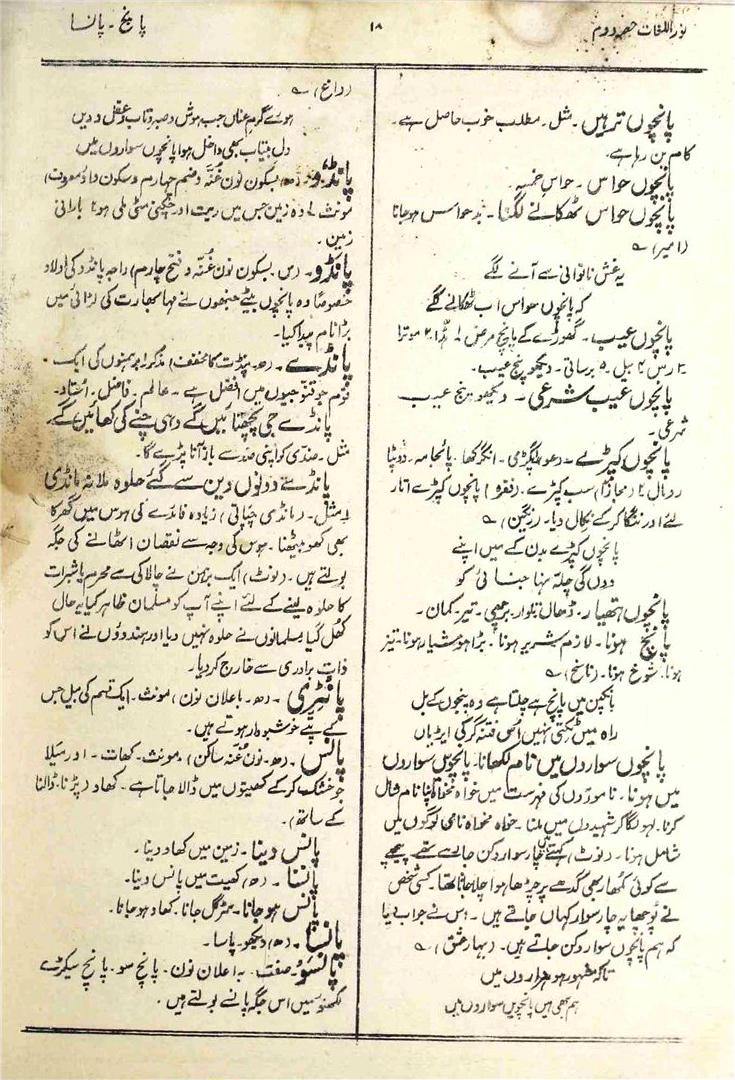 نور اللغات حصہ دوم
۱۸
پانچ - پانسا
پانچوں تر ہیں ۔ مثل ۔ مطلب خوب حاصل ہے ۔
کام بن رہا ہے ۔
پانچوں حواس ۔ حواس خمسہ ۔
پانچوں حواس ٹھکانے لگنا ۔ بد حواس ہوجانا
(امیر) ؎
یہ غش ناتوانی سے آنے لگے
کہ پانچوں حواس اب ٹھکانے لگے
پانچوں عیب ۔ گھوڑے کے پانچ مرض ۱ ہڈا ۲ موترا
۳ رس ۴ بیل ۵ برساتی ۔ دیکھو پنج عیب ۔
پانچوں عیب شرعی ۔ دیکھو پنج عیب
شرعی ۔
پانچوں کپڑے ۔ پگڑی ۔ انگرکھا ۔ پائجامہ ۔ دوپٹا
رومال ۲ (مجازاً) سب کپڑے ۔ (فقرہ) پانچوں کپڑے اتار
لئے اور ننگا کرکے نکال دیا ۔ (رنگین) ؎
پانچوں کپڑے بدن کے میں اپنے
دوں گی چلّہ نہا جنائی کو
پانچوں ہتھیار ۔ ڈھال تلوار ۔ برچھی ۔ تیر ۔ کمان ۔
پانچ ہونا ۔ لازم شریر ہونا ۔ بڑا ہوشیار ہونا ۔ تیز
ہونا ۔ شوخ ہونا ۔ (ناسخ) ؎
بانکپن میں پانچ ہے چلتا ہے وہ پنجوں کے بل
راہ میں ٹکتی نہیں اُس فتنہ گر کی ایڑیاں
پانچوں سواروں میں نام لکھانا ۔ پانچویں سواروں
میں ہونا ۔ ناموروں کی فہرست میں خواہ مخواہ اپنا نام شامل
کرنا ۔ لہو لگا کر شہیدوں میں ملنا ۔ خواہ مخواہ نامی لوگوں میں
شامل ہونا ۔ (نوٹ) کہتے ہیں چار سوار دکن جا رہے تھے پیچھے
سے کوئی کمھار بھی گدھے پر چڑھا ہوا چلا جاتا تھا ۔ کسی شخص
نے پوچھا یہ چار سوار کہاں جاتے ہیں ۔ اس نے جواب دیا
کہ ہم پانچوں سوار دکن جاتے ہیں ۔ (بہار عشق) ؎
تاکہ مشہور ہو ہزاروں میں
ہم بھی ہیں پانچویں سواروں میں
(داغ) ؎
ہوئے گرم عناں جب ہوش و صبر و تاب و عقل و دیں
دل بیتاب بھی داخل ہوا پانچوں سواروں میں
پانڈو ۔ (ھ) بسکون نون غنّہ و ضم چہارم و سکون واو معروف)
مونث ۔ وہ زمین جس میں ریت اور چکنی مٹی ملی ہو ۲ بارانی
زمین ۔
پانڈو ۔ (س ۔ بسکون نون غنّہ و فتح چہارم) راجہ پانڈو کی اولاد
خصوصاً وہ پانچوں بیٹے جنھوں نے مہابھارت کی لڑائی میں
بڑا نام پیدا کیا ۔
پانڈے ۔ (ھ ۔ پنڈت کا مخفف) مذکر ۱ برہمنوں کی ایک
قوم جو قنوجیوں میں افضل ہے ۔ عالم ۔ فاضل ۔ اُستاد ۔
پانڈے جی پچھتائیں گے وہی چنے کی کھائیں گے ۔
مثل ۔ ضدی کو اپنی ضد سے باز آنا پڑے گا ۔
پانڈے دونوں دین سے گئے حلوہ ملا نہ مانڈی
(مثل ۔ (مانڈی چپاتی) زیادہ فائدے کی ہوس میں گھر کا
بھی کھو بیٹھنا ۔ ہوس کی وجہ سے نقصان اٹھانے کی جگہ
بولتے ہیں ۔ (نوٹ) ایک برہمن نے چالاکی سے محرم یا شبرات
کا حلوہ لینے کے لئے اپنے آپ کو مسلمان ظاہر کیا یہ حال
کھل گیا مسلمانوں نے حلوہ نہیں دیا اور ہندوؤں نے اس کو
ذات برادری سے خارج کردیا ۔
پانڑی ۔ (ھ ۔ باعلان نون) مونث ۔ ایک قسم کی بیل جس
کے پتے خوشبودار ہوتے ہیں ۔
پانس ۔ (ھ ۔ نون غنّہ ساکن) مونث ۔ کھات ۔ اور میلا
جو خشک کرکے کھیتوں میں ڈالا جاتا ہے ۔ کھاد (پڑنا ۔ ڈالنا
کے ساتھ) ۔
پانس دینا ۔ زمین میں کھاد دینا ۔
پانسنا ۔ (ھ) کھیت میں پانس دینا ۔
پانس ہوجانا ۔ سڑ گل جانا ۔ کھاد ہوجانا ۔
پانسا ۔ (ھ) دیکھو پاسا ۔
پانسو ۔ صفت ۔ بہ اعلان نون ۔ پانچ سو ۔ پانچ سیکڑے
لکھنؤ میں اس جگہ پانسے بولتے ہیں ۔